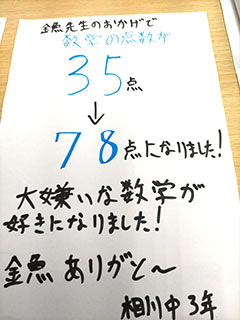 金魚先生のおかげで
数学の点数が
35点
↓
78点になりました!
大嫌いな数学が
好きになりました!
金魚 ありがと〜
相川中3年